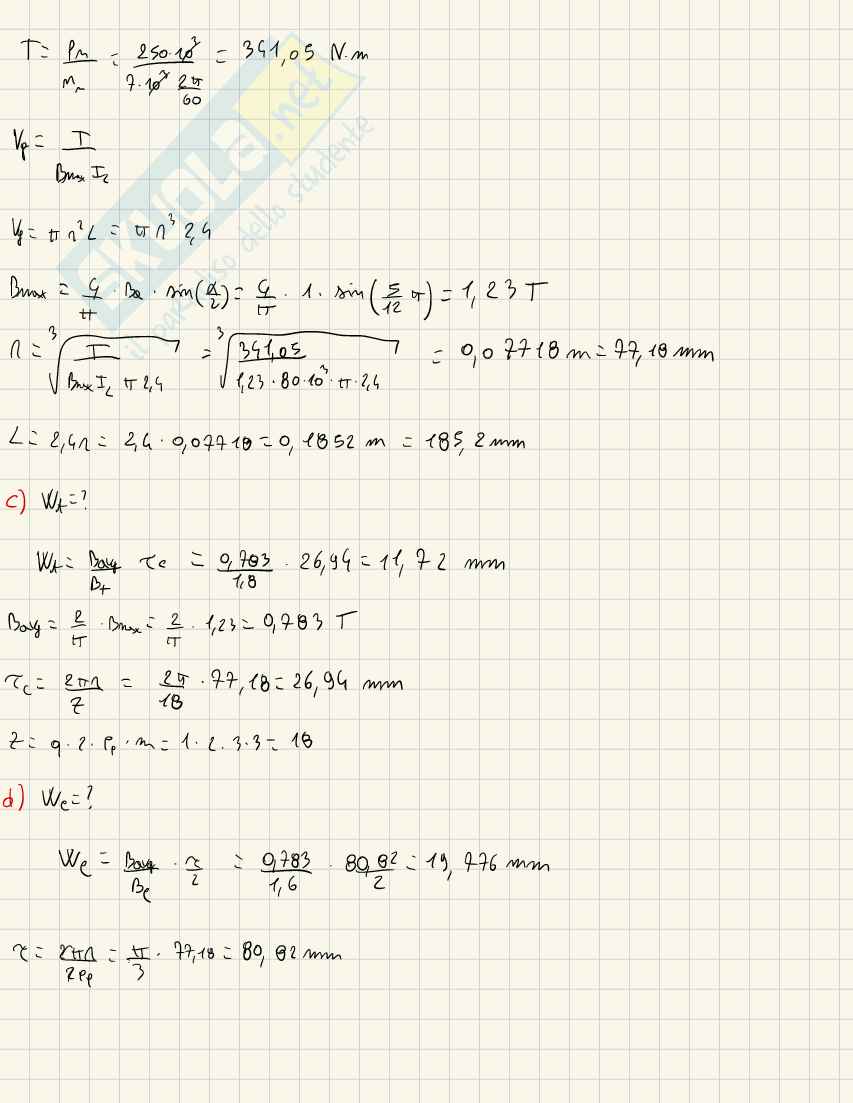 T = Pn/nn = 250·10³ / 7·10³ 2π/60 = 341,05 N·m
Vg = T / Bmax IL
Vg = π r² L = π r³ 2,4
Bmax = 4/π · Ba · sin(α/2) = 4/π · 1 · sin(5/12 π) = 1,23 T
r = ³√(T / Bmax IL π 2,4) = ³√(341,05 / 1,23·80·10³·π·2,4) = 0,07718 m = 77,18 mm
L = 2,4r = 2,4 · 0,07718 = 0,1852 m = 185,2 mm
c) Wt = ?
Wt = Bavg/Bt τc = 0,783/1,8 · 26,94 = 11,72 mm
Bavg = 2/π · Bmax = 2/π · 1,23 = 0,783 T
τc = 2πr/Z = 2π/18 · 77,18 = 26,94 mm
Z = q · 2 · Pp · m = 1 · 2 · 3 · 3 = 18
d) We = ?
We = Bavg/Be · τ/2 = 0,783/1,6 · 80,82/2 = 19,776 mm
τ = 2πr/2Pp = π/3 · 77,18 = 80,82 mm
SKUOLA.net
il paradiso dello studente